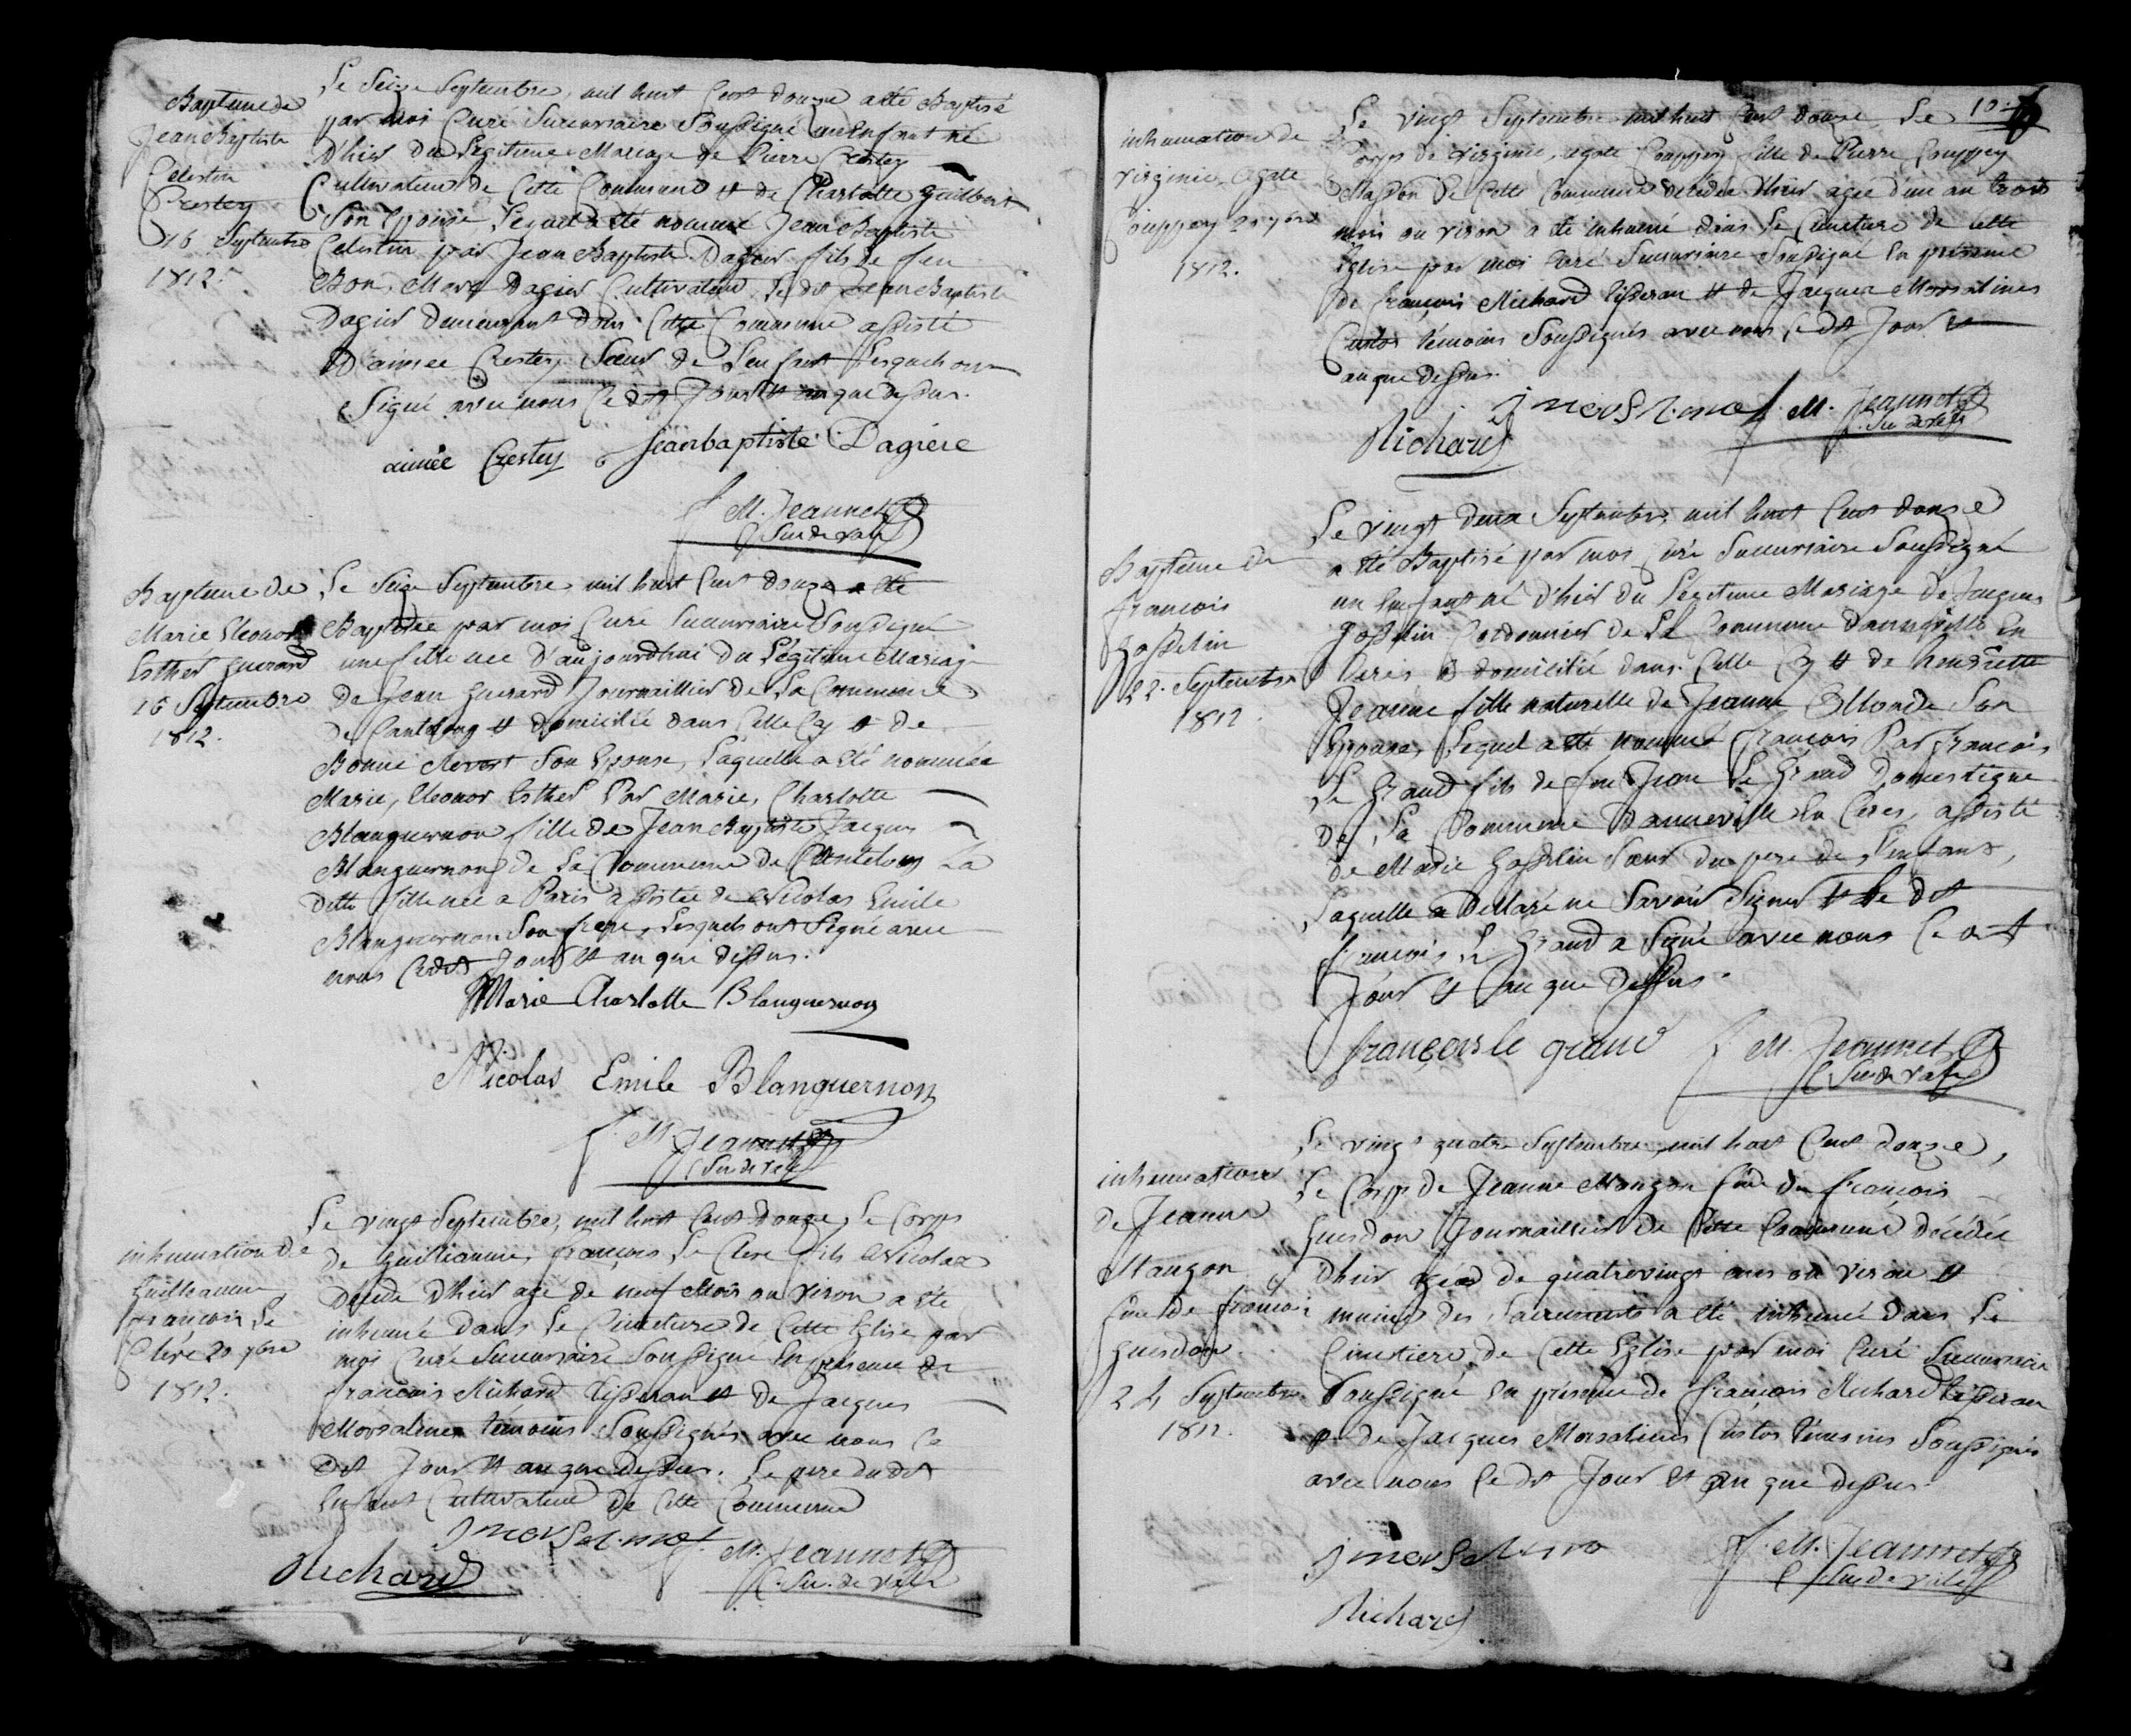 Baptême de
Jean Baptiste
Celestin
Crestey
16 Septembre
1812.
Le Seize Septembre, mil huit Cent douze a été Baptisé
par moi Curé Succursaire Soussigné un Enfant né
D'hier du Légitime Mariage de Pierre Crestey
Cultivateur de Cette Commune et de Charlotte Guilbert
Son Epouse Lequel a été nommé Jean Baptiste
Celestin par Jean Baptiste Dagier fils de feu
Bon Marc Dagier Cultivateur, Le dit Jean Baptiste
Dagier demeurant dans Cette Commune assisté
D'aimée Crestey Sœur de L'enfant Lesquels ont
Signé avec nous Ce dit Jour et an que dessus.
aimée Crestey Jean baptiste Dagiere
f. M. Jeannet
C. Suc de vale
Baptême de
Marie Eleonor
Esther Guerard
16 Septembre
1812.
Le Seize Septembre, mil huit Cent douze a été
Baptisée par moi Curé Succursaire Soussigné
une fille née D'aujourdhui du Légitime Mariage
de Jean Guerard Journaillier de La Commune
de Canteloup et domicilié dans Celle Cy et de
Bonne Son Epouse, Laquelle a été nommée
Marie, Eleonor Esther Par Marie, Charlotte
Blanguernon fille de Jean Baptiste Jacques
Blanguernon de La Commune de Canteloup La
ditte fille née a Paris assistée de Nicolas Emile
Blanguernon Son frere, Lesquels ont Signé avec
nous Cedit Jour et an que dessus.
Marie Charlotte Blanguernon
Nicolas Emile Blanguernon
f. M. Jeannet
C. Suc de vale
inhumation de
Guillaume
francois Le
Clere 20 7bre
1812.
Le vingt Septembre, mil huit Cent douze, Le Corps
de Guillaume, françois Le Clere fils Nicolas
Decedé D'hier agé de neuf Mois ou viron a été
inhumé dans Le Cimetiere de Cette Eglise par
moi Curé Succursaire Soussigné En présence de
francois Richard tisseran et de Jacques
Morsalines témoins Soussignés avec nous Ce
dit Jour et an que dessus. Le pere dudit
Enfant Cultivateur de Cette Commune
J morsalines
Richard
f. M. Jeannet
C. Suc. de vale
10
inhumation de
virginie Agate
Couppey 20 7bre
1812.
Le vingt Septembre mil huit Cent douze, Le
Corps de virginie, agate Couppey fille de Pierre Couppey
Masson de Cette Commune décédée D'hier agée d'un an trois
mois ou viron a été inhumé dans Le Cimetiere de cette
Eglise par moi Curé Succursaire Soussigné En présence
de françois Richard tisseran et de Jacques Morsalines
Custos témoins Soussignés avec nous Ce dit Jour et
an que dessus.
Richard
f. M. Jeannet
C. Suc de vale
Baptême de
francois
Gosselin
22. Septembre
1812.
Le vingt deux Septembre, mil huit Cent douze
a été Baptisé par moi Curé Succursaire Soussigné
un Enfant né D'hier du Légitime Mariage de Jacques
Gosselin Cordonnier de La Commune Danneville En
Ceres et domicilié dans Celle Cy et de henriette
Jeanne fille naturelle de Jeanne Son
Epouse, Lequel a été nommé françois Par françois
Le Grand fils de feu Jean Le Grand Domestique
de La Commune Danneville En Ceres, assisté
de Marie Gosselin Sœur du pere de L'enfant,
Laquelle a Déclaré ne Savoir Signer et Le dit
francois Le Grand a Signé avec nous Ce dit
Jour et an que dessus.
françois le grand
f. M. Jeannet
C. Suc de vale
inhumation
de Jeanne
Mangon
de francois
Guesdon.
24 Septembre
1812.
Le vingt quatre Septembre, mil huit Cent douze,
Le Corps de Jeanne Mangon de françois
Guesdon Journaillier de Cette Commune, décédée
D'hier agée de quatrevingt ans ou viron et
munie des Sacrements a été inhumé dans Le
Cimetiere de Cette Eglise par moi Curé Succursaire
Soussigné En présence de françois Richard tisseran
et de Jacques Morsalines Custos témoins Soussignés
avec nous Ce dit Jour et an que dessus.
Richard
f. M. Jeannet
C. Suc de vale